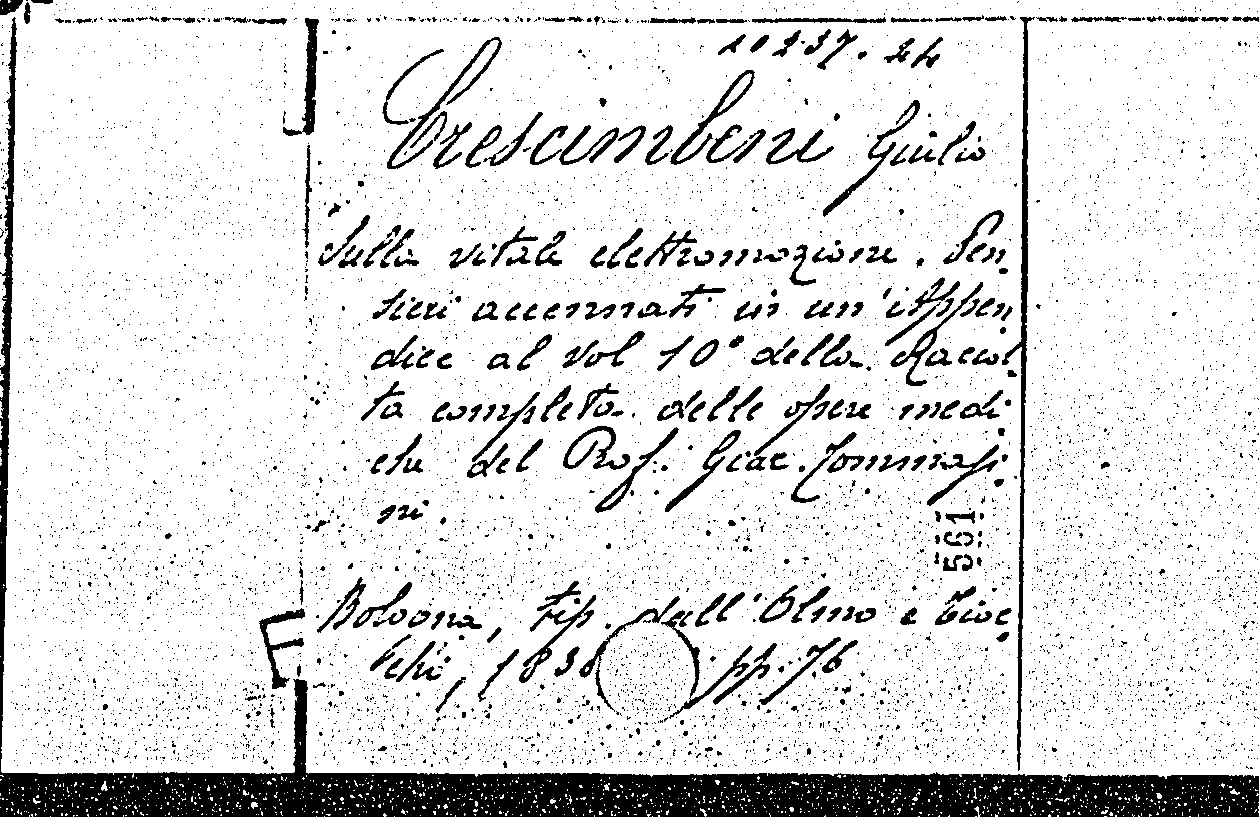 10237.24
Crescimbeni Giulio
Sulla vitale elettromozione. Pen-
sieri accennati in un'Appen-
dice al Vol 10° della Raccol-
ta completa delle opere medi-
che del Prof. Giac. Tommasi-
ni.
561
Bologna, tip. dall'Olmo e Tioc-
chi, 1838 pp. 76